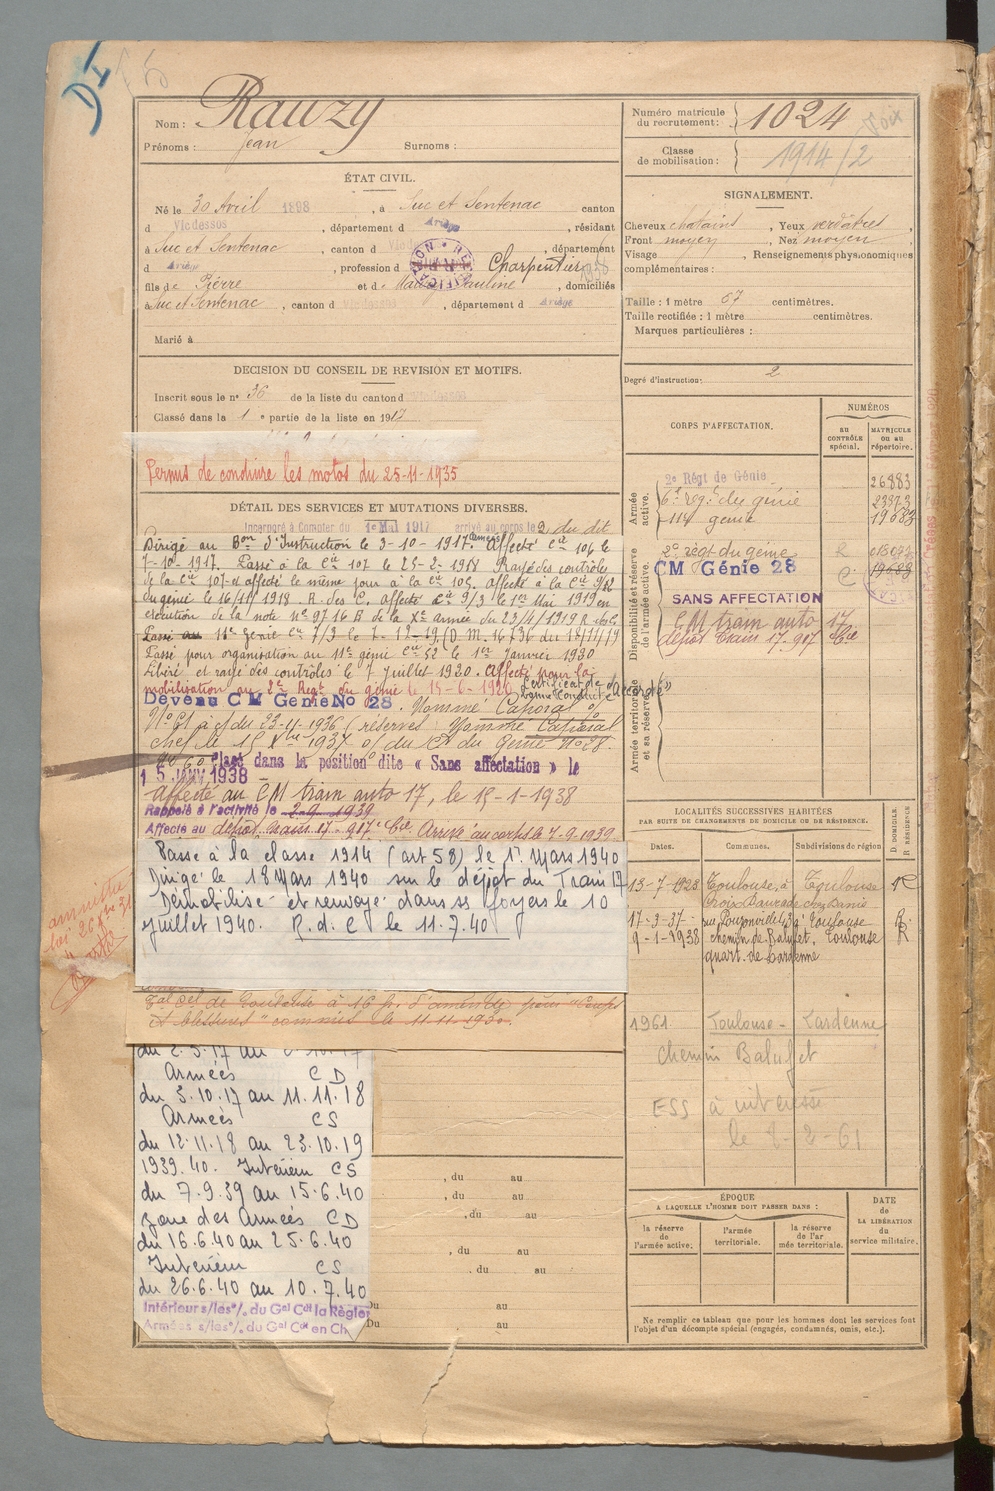 Nom : Rauzy
Prénoms : Jean Surnoms :
Numéro matricule du recrutement : 1024
Classe de mobilisation : 1914/2
ÉTAT CIVIL.
Né le 30 Avril 1898, à Suc et Sentenac canton
d Vicdessos, département d Ariège, résidant
à Suc et Sentenac, canton d, département
d Ariège, profession d Charpentier
fils de Pierre et de Pauline, domiciliés
à Suc et Sentenac, canton d Vicdessos, département d Ariège
Marié à
SIGNALEMENT.
Cheveux chatains, Yeux verdâtres,
Front moyen, Nez moyen
Visage, Renseignements physionomiques
complémentaires :
Taille : 1 mètre 67 centimètres.
Taille rectifiée : 1 mètre centimètres.
Marques particulières :
Degré d'instruction : 2
DECISION DU CONSEIL DE REVISION ET MOTIFS.
Inscrit sous le n° 36 de la liste du canton d Vicdessos
Classé dans la 1 e partie de la liste en 1917
Permis de conduire les motos du 25-11-1935
DÉTAIL DES SERVICES ET MUTATIONS DIVERSES.
Incorporé à Compter du 1er Mai 1917 arrivé au corps le 2 du dit
Dirigé au Bon d'Instruction le 3-10-1917. Affecté Cie 106 le
7-10-1917. Passé à la Cie 107 le 25-2-1918 Rayé des contrôles
de la Cie 107 et affecté le même jour à la Cie 105, affecté à la Cie 9/2
du génie le 1918 R. des C. affecté Cie 9/3 le 1er Mai 1919 en
exécution de la note n° 9716 B du Xe armée du 23/4/1919 R. de C.
Passé au 11e Génie Cie 7/3 le 7-12-19 (D.M. 16736 du
Passé pour organisation au 11e génie Cie 52 le 1er Janvier 1920
Libéré et rayé des contrôles le 7 Juillet 1920. Affecté pour la
mobilisation au 2e Régt du génie le 15-6-1920 Certificat de Bonne Conduite "Accordé"
Devenu CM Génie No 28. Nommé Caporal
N° 61 du 23-11-1936 (réserves. Nommé Caporal
chef le 15 Xbre 1937 du Ct du Génie N° 28.
N° 60 Placé dans la position dite « Sans affectation » le
15 JANV 1938
Affecté au CM train auto 17, le 15-1-1938
Rappelé à l'activité le 2.9.1939
Affecté au dépôt train 17-917e Cie. Arrivé au corps le 7-9-1939
Passé à la classe 1914 (art 58) le 1er Mars 1940
Dirigé le 18 Mars 1940 sur le dépôt du Train 17
Démobilisé et renvoyé dans ses foyers le 10
juillet 1940. R.d.C le 11.7.40
amnistie
loi 26
de Toulouse à 16 fr. d'amende pour "Coups
et blessures" commis le 11.11.1930.
du 2.5.17 au
Armées CD
du 3.10.17 au 11.11.18
Armées CS
du 12.11.18 au 23.10.19
1939.40. Intérieur CS
du 7.9.39 au 15.6.40
zone des Armées CD
du 16.6.40 au 25.6.40
Intérieur CS
du 26.6.40 au 10.7.40
Intérieur s/les °/. du Gal Cdt la Région
Armées s/les °/. du Gal Cdt en Ch
, du au
, du au
, du au
, du au
, du au
Du au
Du au
CORPS D'AFFECTATION.
NUMÉROS
AU CONTRÔLE SPÉCIAL.
MATRICULE OU AU RÉPERTOIRE.
Armée active.
2e Régt de Génie 26883
6e reg.t du génie 23323
11e génie 19683
Disponibilité et réserve de l'armée active.
2e régt du génie R
CM Génie 28 C 19683
SANS AFFECTATION
CM train auto 17
dépôt train 17-917 Cie
Armée territoriale et sa réserve
LOCALITÉS SUCCESSIVES HABITÉES
PAR SUITE DE CHANGEMENTS DE DOMICILE OU DE RÉSIDENCE.
Dates. Communes. Subdivisions de région D. DOMICILE. R. RÉSIDENCE
13-7-1928 Toulouse, à Toulouse R
Croix Daurade
17-3-37 Toulouse R
9-1-1938 chemin de Balufet. Toulouse R
quart. de Lardenne
1961. Toulouse - Lardenne
Chemin Balufet
ESS à intéressé
le 8-2-61
ÉPOQUE
A LAQUELLE L'HOMME DOIT PASSER DANS :
la réserve de l'armée active.
l'armée territoriale.
la réserve de l'armée territoriale.
DATE de LA LIBÉRATION du service militaire.
Ne remplir ce tableau que pour les hommes dont les services font
l'objet d'un décompte spécial (engagés, condamnés, omis, etc.).